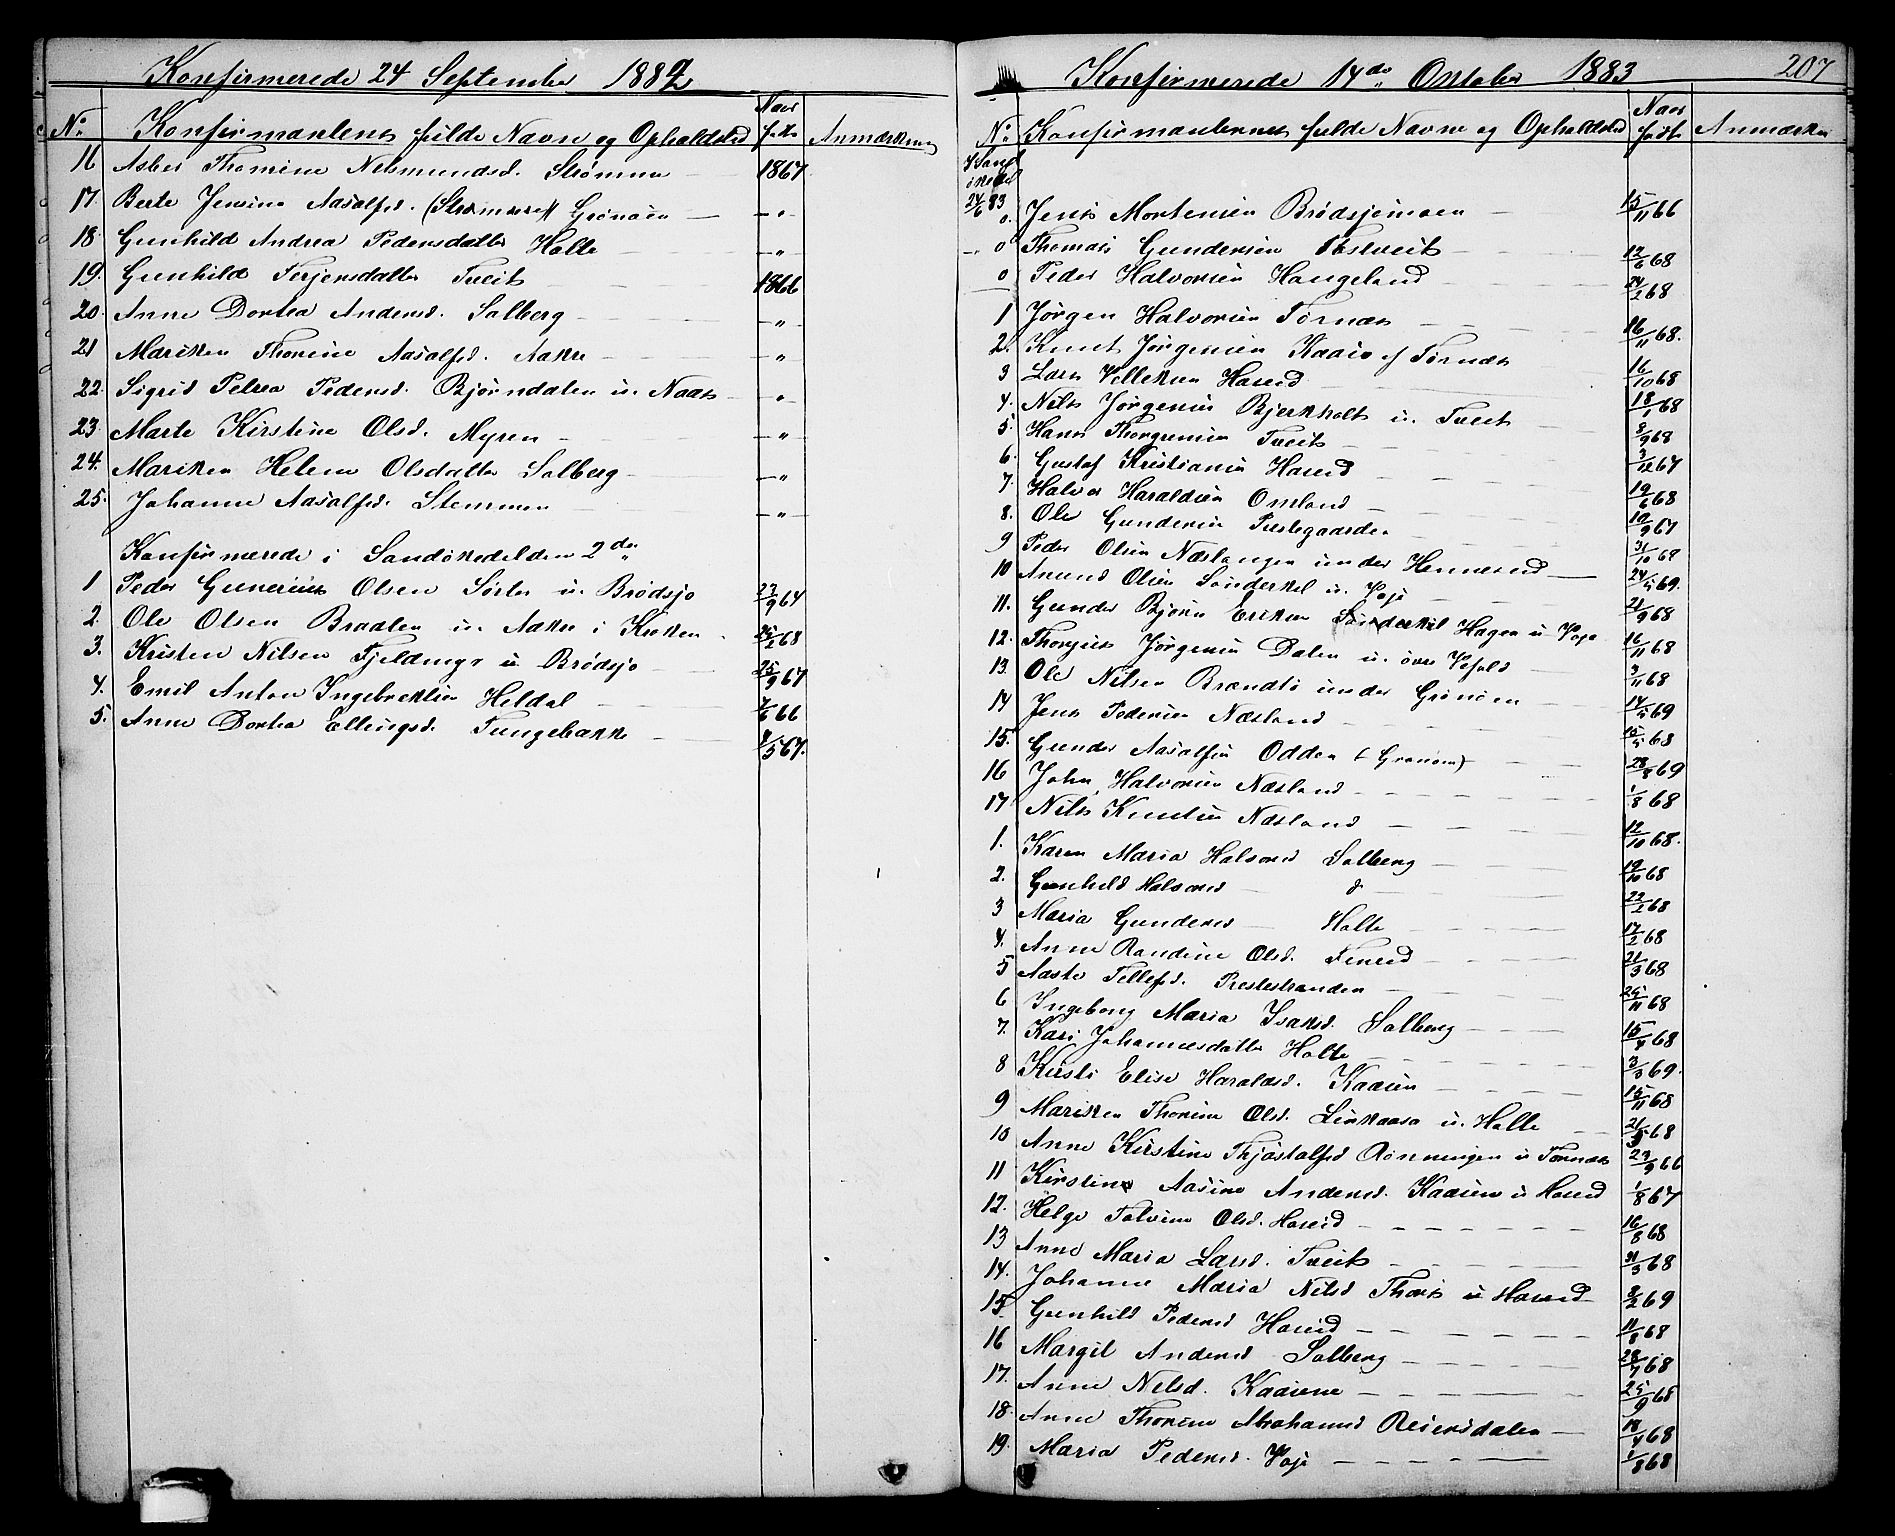 Konfirmerede 24 September 1882
No. Konfirmantens fulde Navn og Opholdsted Naar født Anmærkning
16 Asber Thomine Nelsmundsd. Strømme 1867
17. Berte Jensine Aasalfsd. (Strømmene) Grønåen — " —
18. Gunhild Andrea Pedersdatter Holte — " —
19. Gunhild Terjersdatter Tveit 1866
20. Anne Dortea Andersd. Solberg — " —
21 Mariken Thorine Aasalfsd. Aakre — " —
22. Sigrid Petrea Pedersd. Bjørndalen u. Naas — " —
23. Marte Kirstine Olsd. Myren — " —
24. Mariken Helene Olsdatter Solberg — " —
25. Johanne Aasalfsd. Stemmen — " —
Konfirmerede i Sandøkedelden 2den
1 Peder Gunerius Olsen Sørlie u. Brødsjø 27/9 64
2. Ole Olsen Braaten u. Aakre i Kroken 25/2 68
3. Kristen Nilsen Fjeldunge u Brødsjø 25/9 67
4. Emil Anton Ingebretsen Heldal 7/6 66
5. Anne Dortea Ellingsd. Tungebakke 4/5 67.
Konfirmerede 14de Oktober 1883 207
No. Konfirmanternes fulde Navn og Opholdsted Naar født Anmærkn
24/6 83
0. Jens Mortensen Brødsjømoen 15/11 66
0 Thomas Gundersen Tostveit 12/6 68
0 Peder Halvorsen Haugeland 24/2 68
1 Jørgen Halvorsen Tørnæs 16/11 68.
2. Knut Jørgensen Kaasa af Tørnæs
3 Lars Villeksen Hareid 16/10 68
4. Nils Jørgensen Bjerkholt u. Tveit 18/1 68
5. Hans Thorgrensen Tveit 8/9 68
6. Gustaf Kristiansen Hareid 3/12 67
7. Halvor Haraldsen Omland 19/6 68
8. Ole Gundersen Prestegaarden 10/9 67
9 Peder Olsen Næstangen under Henneseid 31/10 68
10 Anund Olsen Sønderkel u. Voje 24/5 69.
11. Gunder Bjørn Eriksen Sønderkil Hagen u Voje 21/9 68
12. Thorjus Jørgensen Dalen u. øvre Vefald 16/11 68
13. Ole Nilsen Brændtø under Grønåen 3/11 68
14 Jens Pedersen Næsland 14/5 69
15. Gunder Aasalfsen Odden (Grønåen) 15/5 68
16 John Halvorsen Næsland 28/8 69
17 Nils Knutsen Næsland 1/8 68
1. Karen Maria Halvorsd Solberg 12/10 68.
2. Gunhild Halvorsd — d — 19/10 68
3 Maria Gundersd — Holte 22/2 68
4. Anne Randine Olsd. Tensed 17/2 68
5 Aaste Tellefsd. Prestestranden 21/3 68
6 Ingeborg Maria Isaksd. Solberg 25/11 68
7. Kari Johannesdatter Holte 15/4 68
8 Kirsti Elise Haraldsd. Kaasen 3/3 69.
9 Mariken Thorine Olsd. Linkaasa u. Holte 15/11 68
10 Anne Kirstine Thjøstolfsd Rønningen u Tørnæs 21/5 68
11 Kirstine Aasine Andersd. Kaasene u Hareid 29/9 66
12. Helge Tolvine Olsd. Hareid 1/8 67
13 Anne Maria Larsd. Tveit 16/8 68
14. Johanne Maria Nilsd Thors u Hareid 31/3 68
15. Gunhild Pedersd Hareid 8/2 69
16 Margit Andersd Solberg 11/8 68
17. Anne Nelsd. Kaasene 28/7 68
18. Anne Thorine Abrahamsd Reiersdalen 25/9 68
19. Maria Pedersd. Voje 18/4 68
1/8 68